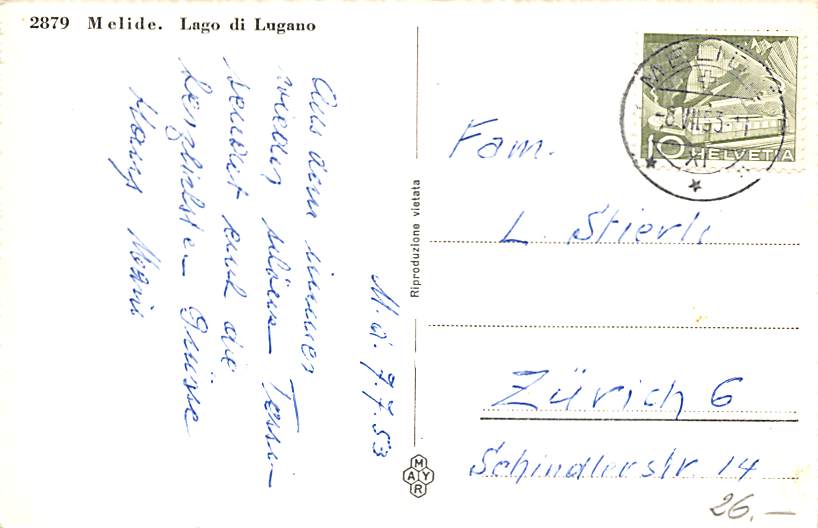 2879 Melide. Lago di Lugano
M. d. 7.7.53
Aus dem immer
wieder schönen Tessin
sendet euch die
herzlichsten Grüsse
Hans
Riproduzione vietata
MAYR
Fam.
L. Stierli
Zürich 6
Schindlerstr. 14
26.—
MELIDE
8.VII.53
XI
10 HELVETIA